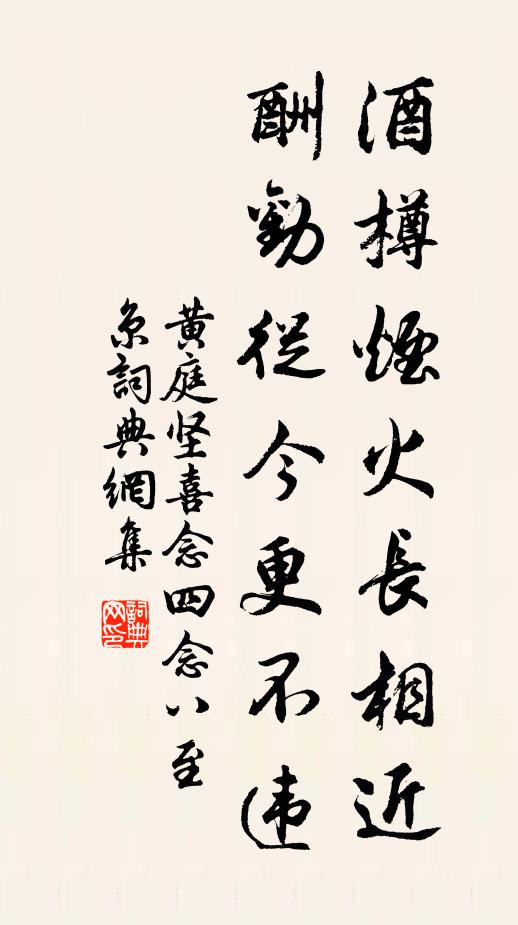 酒樽煙火長相近
酬勸從今更不违
黄庭坚喜念四念八至
京詞典網集
詞典网印